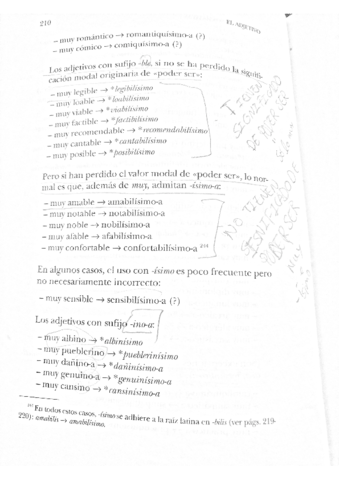 210
EL ADJETIVO
– muy romántico → romantiquísimo-a (?)
– muy cómico → comiquísimo-a (?)
Los adjetivos con sufijo -ble, si no se ha perdido la signifi-
cación modal originaria de «poder ser»:
– muy legible → *legibilísimo
– muy loable → *loabilísimo
– muy viable → *viabilísimo
– muy factible → *factibilísimo
– muy recomendable → *recomendabilísimo
– muy cantable → *cantabilísimo
– muy posible → *posibilísimo
TIENEN
SIGNIFICADO
DE SER
Pero si han perdido el valor modal de «poder ser», lo nor-
mal es que, además de muy, admitan -ísimo-a:
– muy amable → amabilísimo-a
– muy notable → notabilísimo-a
– muy noble → nobilísimo-a
– muy afable → afabilísimo-a
– muy confortable → confortabilísimo-a
NO TIENEN
SIGNIFICADO
PODER SER
En algunos casos, el uso con -ísimo es poco frecuente pero
no necesariamente incorrecto:
– muy sensible → sensibilísimo-a (?)
Los adjetivos con sufijo -ino-a:
– muy albino → *albinísimo
– muy pueblerino → *pueblerinísimo
– muy dañino-a → *dañinísimo-a
– muy genuino-a → *genuinísimo-a
– muy cansino → *cansinísimo-a
En todos estos casos, -ísimo se adhiere a la raíz latina en -bilis (ver págs. 219-
220): amabilis → amabilísimo.